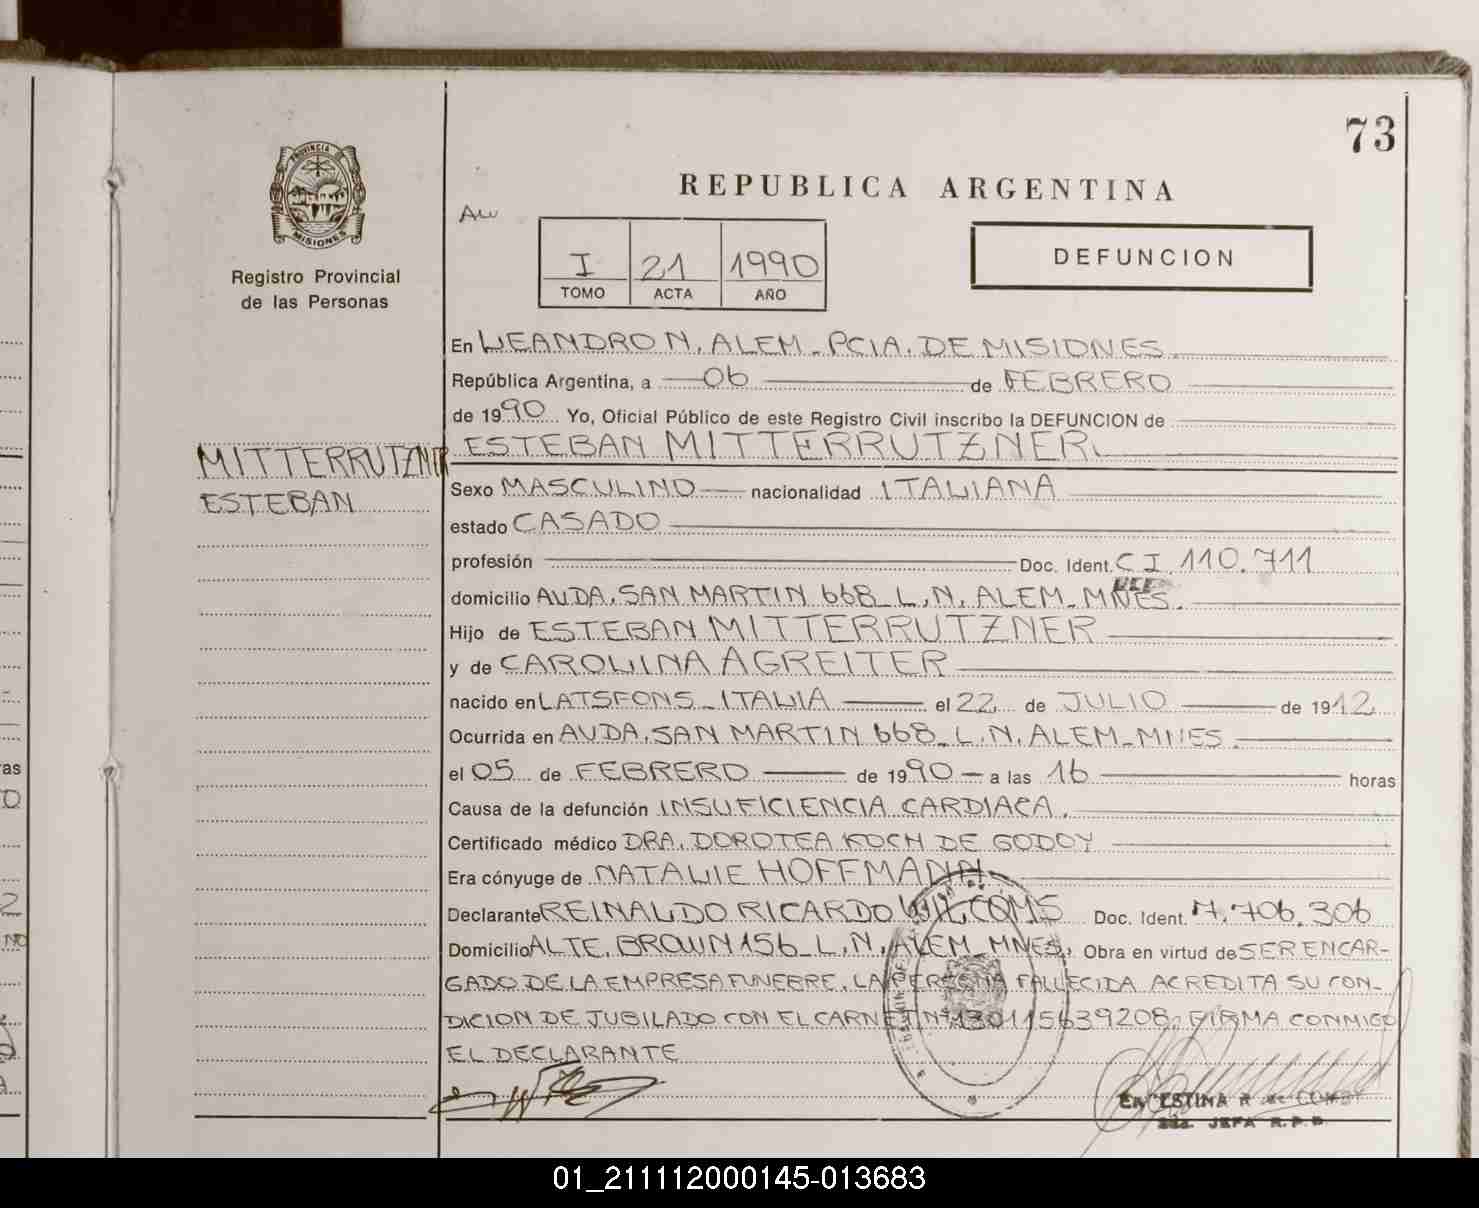 73
PROVINCIA
MISIONES
Registro Provincial
de las Personas
REPUBLICA ARGENTINA
I 21 1990
TOMO ACTA AÑO
DEFUNCION
En LEANDRO N. ALEM - PCIA. DE MISIONES.
República Argentina, a 06 de FEBRERO
de 1990 Yo, Oficial Público de este Registro Civil inscribo la DEFUNCION de
ESTEBAN MITTERRUTZNER.
MITTERRUTZNER
ESTEBAN
Sexo MASCULINO nacionalidad ITALIANA
estado CASADO
profesión Doc. Ident. C I. 110.711
domicilio AVDA. SAN MARTIN 668 - L.N. ALEM - MNES.
Hijo de ESTEBAN MITTERRUTZNER
y de CAROLINA AGREITER
nacido en LATSFONS - ITALIA el 22 de JULIO de 1912
Ocurrida en AVDA. SAN MARTIN 668 - L.N. ALEM - MNES.
el 05 de FEBRERO de 1990 a las 16 horas
Causa de la defunción INSUFICIENCIA CARDIACA.
Certificado médico DRA. DOROTEA KOCH DE GODOY
Era cónyuge de NATALIE HOFFMANN
Declarante REINALDO RICARDO WILCOMS Doc. Ident. 7.706.306
Domicilio ALTE. BROWN 156 - L.N. ALEM - MNES, Obra en virtud de SER ENCAR-
GADO DE LA EMPRESA FUNEBRE. LA PERSONA FALLECIDA ACREDITA SU CON-
DICION DE JUBILADO CON EL CARNET Nº 130115639208. FIRMA CONMIGO
EL DECLARANTE
JEFA R.P.P.
01_211112000145-013683